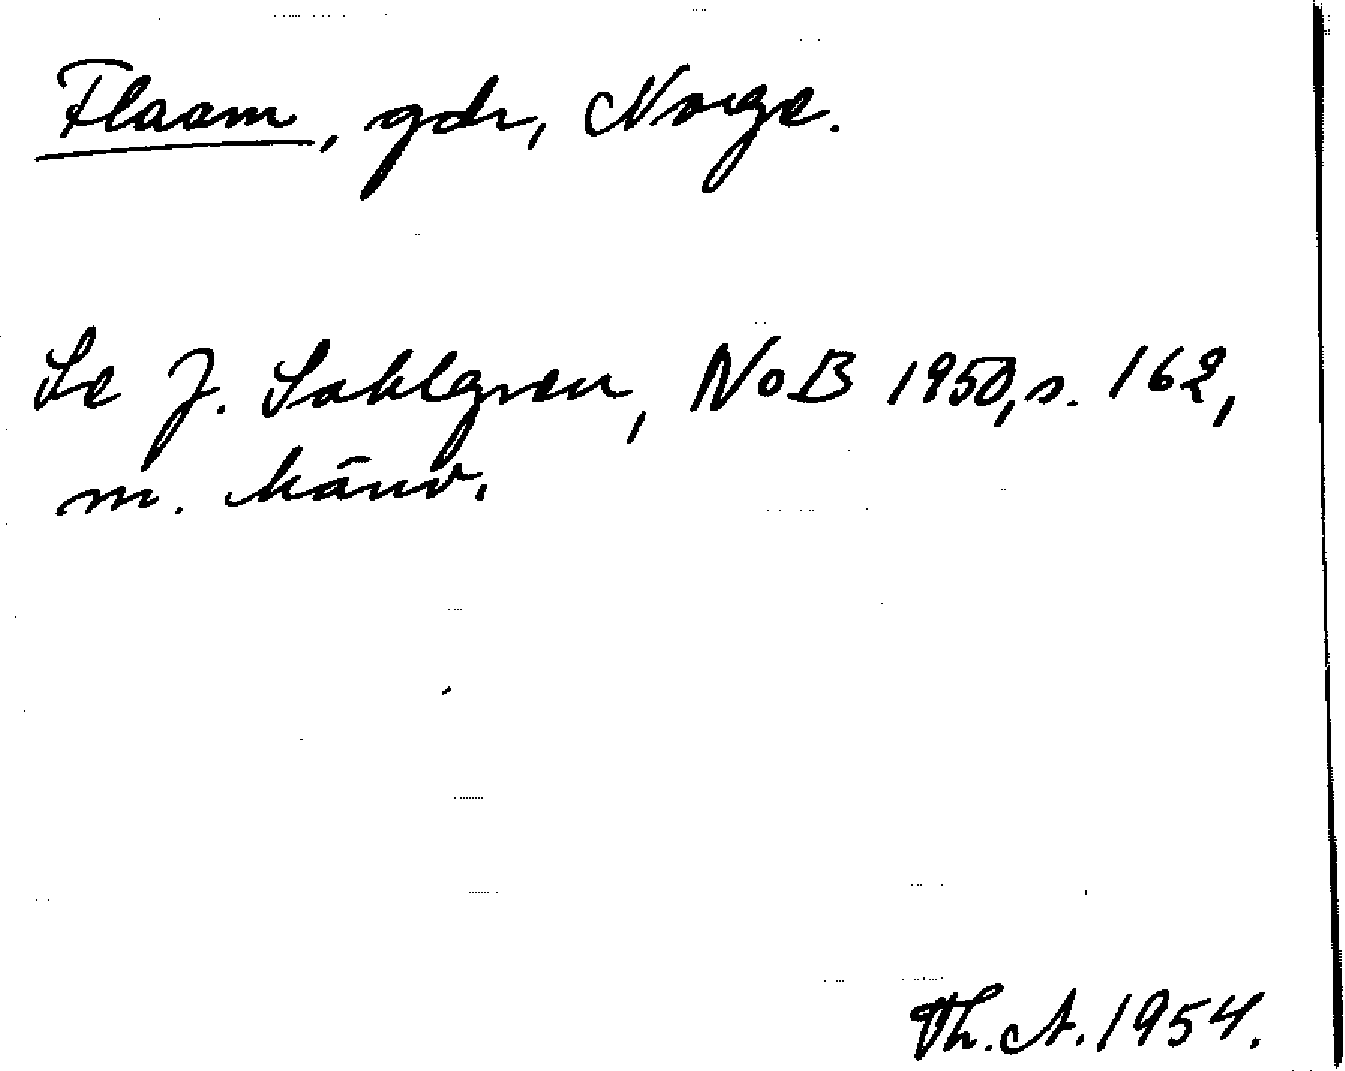 Flaam, gdr, Norge.
Se J. Sahlgren, NoB 1950, s. 162,
m. hänv.
Th. A. 1954.